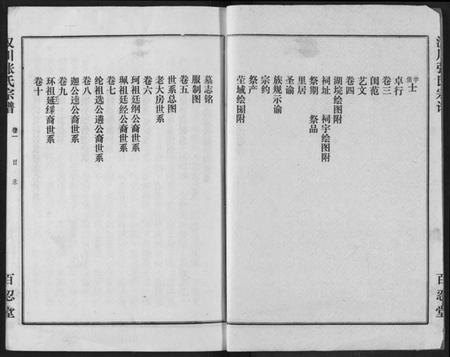 士
卓行
卷三
闺范
艺文
卷四
湖境绘图附
祠址 祠宇绘图附
祭期 祭品
里居
圣谕
族规示谕
宗约
祭产
茔域绘图附
墓志铭
服制图
卷五
世系总图
老大房世系
卷六
珂祖廷纲公裔世系
珮祖廷经公裔世系
卷七
纶祖选公遴公裔世系
卷八
迦公逵公裔世系
卷九
环祖延绎裔世系
卷十
汉川张氏宗谱
卷一
目录
百忍堂
汉川张氏宗谱
百忍堂